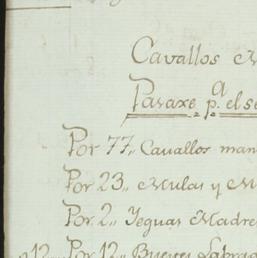 Cavallos M
Paraxe p.ª el se
Por 77,, Cavallos man
Por 23,, Mulas y M
Por 2,, Yeguas Madre
12,, Por 12,, Bueyes Labrad